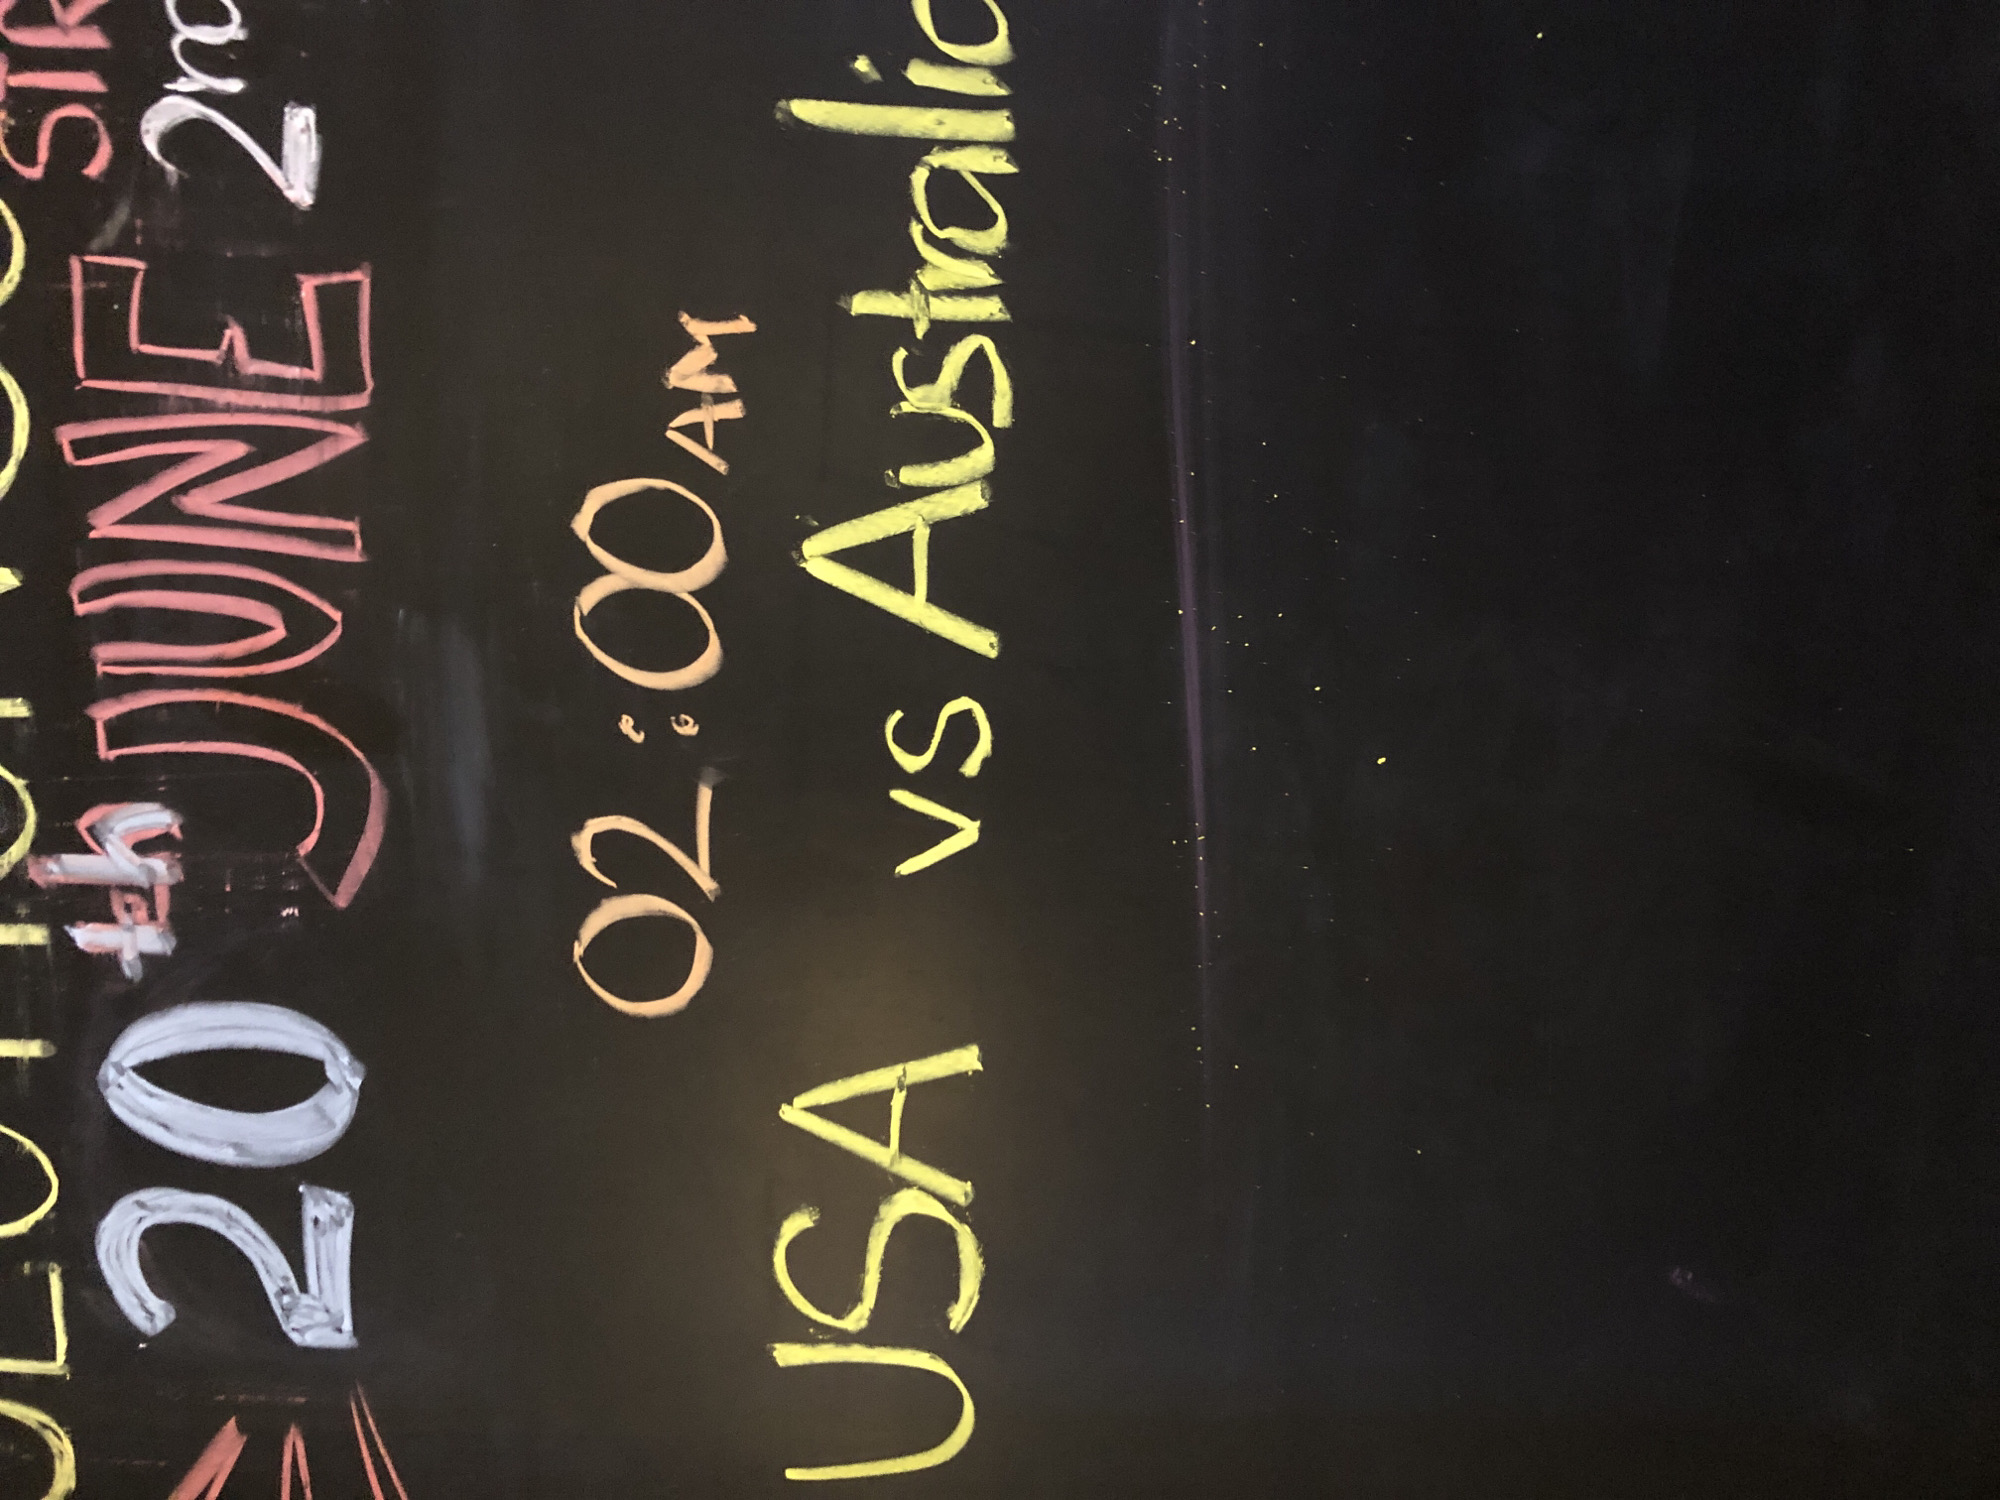 20th JUNE 2nd
02:00 AM
USA vs Australia